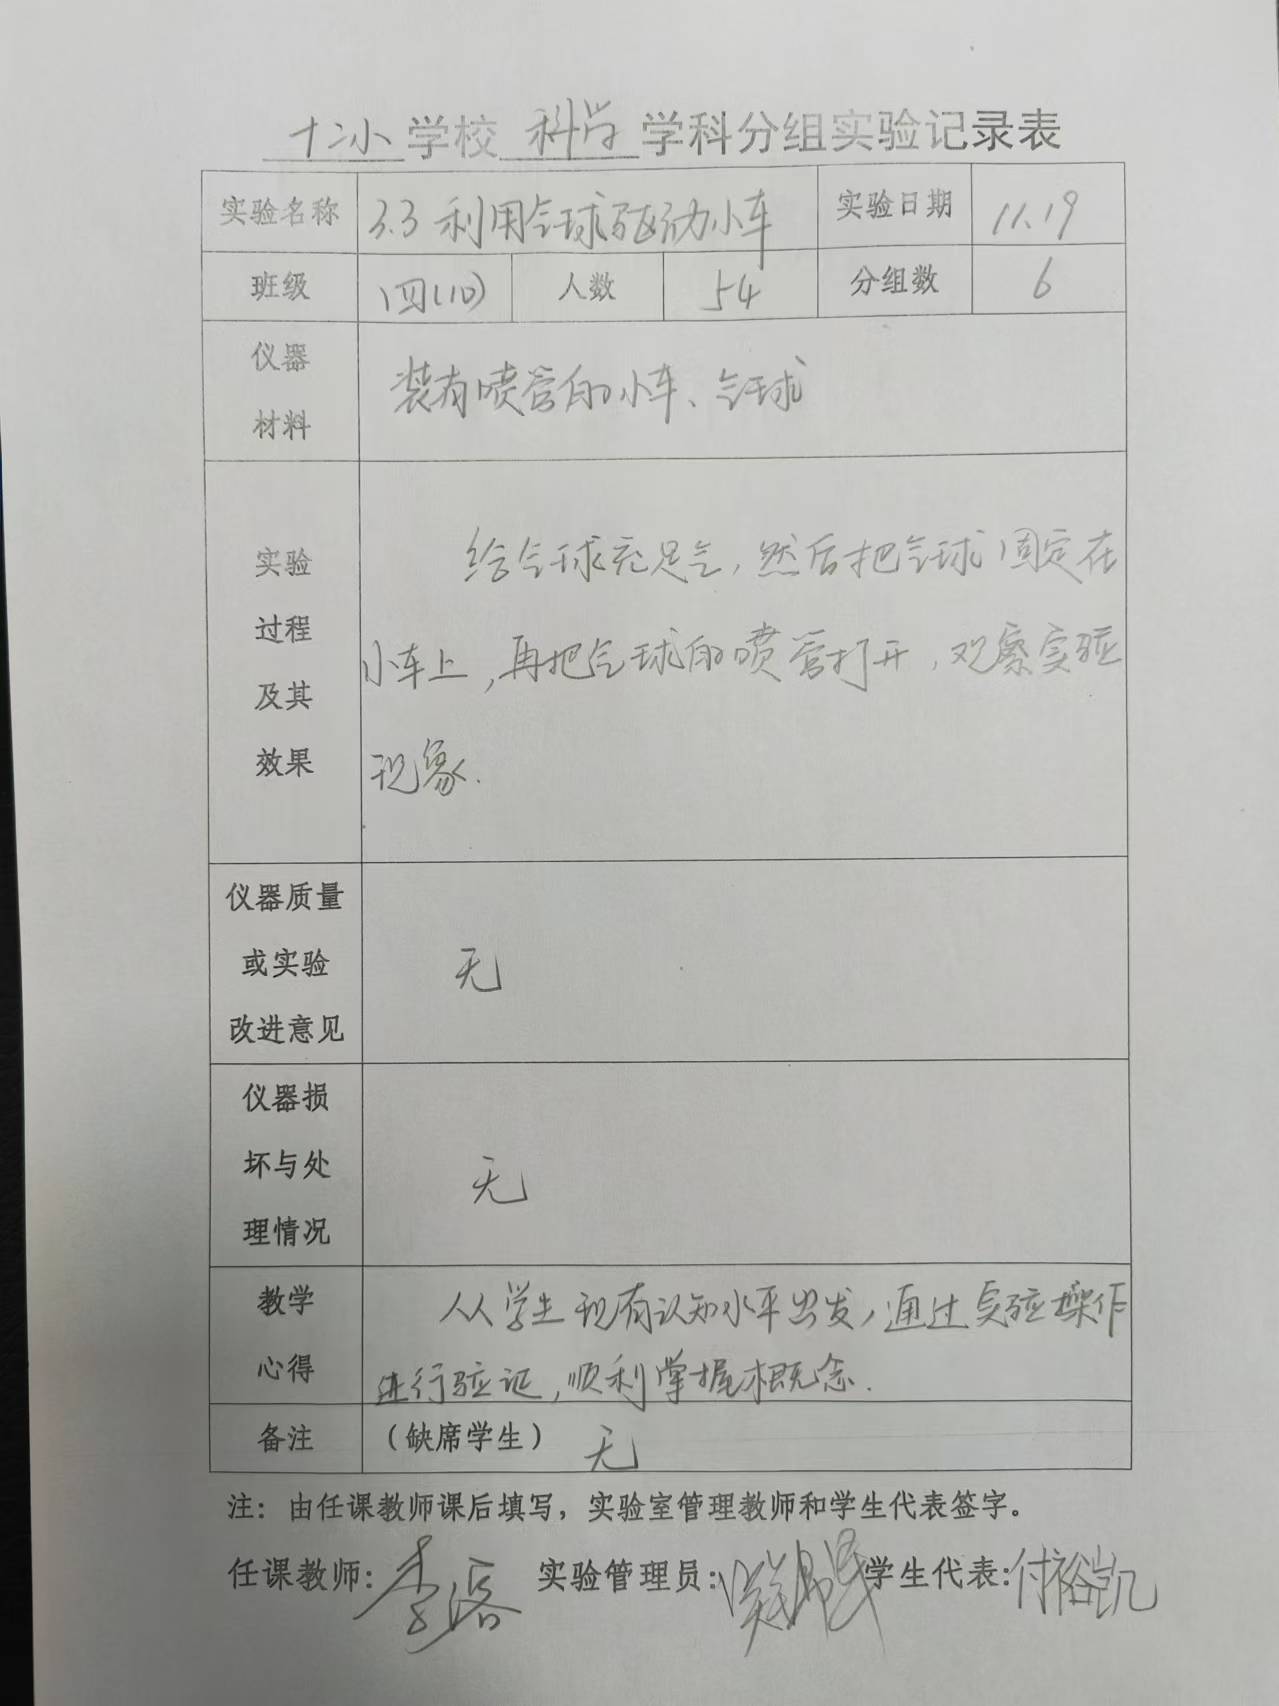 十二小学校 科学 学科分组实验记录表
实验名称 3.3 利用气球驱动小车 实验日期 11.19
班级 四(10) 人数 54 分组数 6
仪器
材料
装有喷管的小车、气球
实验
过程
及其
效果
给气球充足气,然后把气球固定在
小车上,再把气球的喷管打开,观察实验
现象.
仪器质量
或实验
改进意见
无
仪器损
坏与处
理情况
无
教学
心得
从学生现有认知水平出发,通过实验操作
进行验证,顺利掌握概念.
备注 (缺席学生) 无
注:由任课教师课后填写,实验室管理教师和学生代表签字。
任课教师: 李 实验管理员: 学生代表:付裕凯